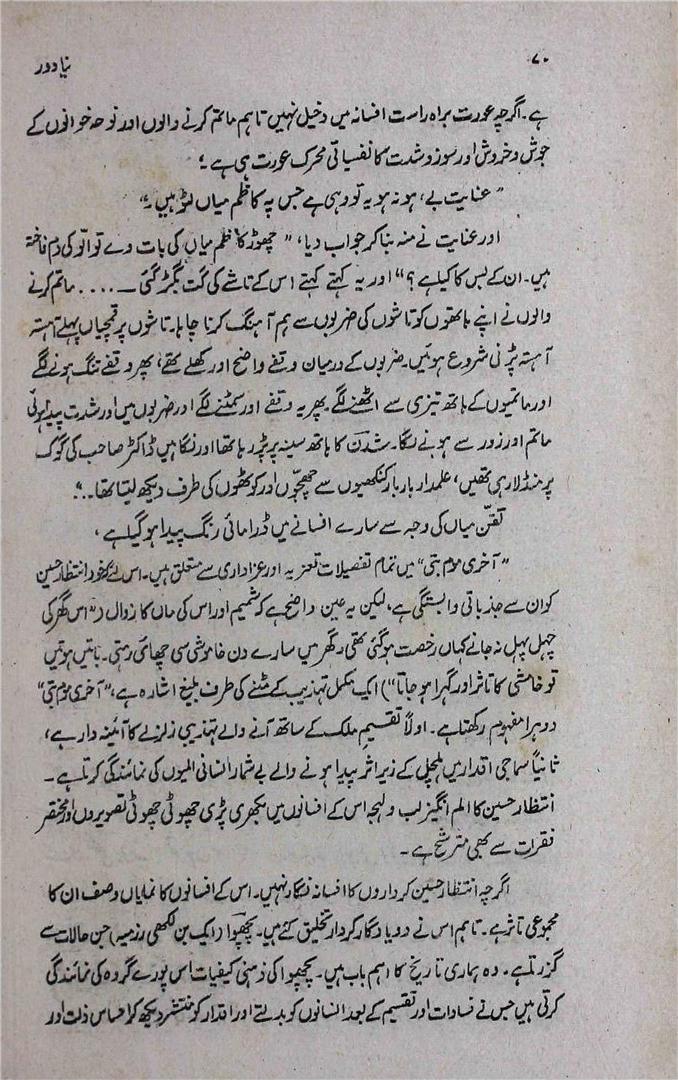 ۷۰
نیا دور
ہے۔ اگرچہ عورت براہ راست افسانہ میں دخیل نہیں تاہم ماتم کرنے والوں اور نوحہ خوانوں کے
جوش و خروش اور سوز و شدت کا نفسیاتی محرک عورت ہی ہے۔؛
”عنایت بے، ہو نہ ہو یہ تو وہی ہے جس پہ کاظم میاں لٹو ہیں۔“
اور عنایت نے منہ بنا کر جواب دیا، ”چھوڑ کاظم میاں کی بات وے تو الّو کی دُم فاختہ
ہیں۔ ان کے بس کا کیا ہے؟“ اور یہ کہتے کہتے اس کے تاشے کی گت بگڑ گئی ــ.... ماتم کرنے
والوں نے اپنے ہاتھوں کو تاشوں کی ضربوں سے ہم آہنگ کرنا چاہا۔ تاشوں پر قمچیاں پہلے آہستہ
آہستہ پڑنی شروع ہوئیں۔ ضربوں کے درمیان وقفے واضح اور کھلے تھے، پھر وقفے تنگ ہونے لگے
اور ماتمیوں کے ہاتھ تیزی سے اٹھنے لگے۔ پھر یہ وقفے اور سمٹنے لگے اور ضربوں میں اور شدت پیدا ہوئی
ماتم اور زور سے ہونے لگا۔ شدّن کا ہاتھ سینہ پر پڑ رہا تھا اور نگاہیں ڈاکٹر صاحب کی گوک
پر منڈلا رہی تھیں، علمدار بار بار کنکھیوں سے چھجّوں اور کوٹھوں کی طرف دیکھ لیتا تھا...“
تفنّن میاں کی وجہ سے سارے افسانے میں ڈرامائی رنگ پیدا ہو گیا ہے،
”آخری موم بتی“ میں تمام تفصیلات تعزیہ اور عزاداری سے متعلق ہیں۔ اس لئے خود انتظار حسین
کو ان سے جذباتی وابستگی ہے، لیکن یہ عین واضح ہے کہ شمیم اور اس کی ماں کا زوال (”اس گھر کی
چہل پہل نہ جانے کہاں رخصت ہو گئی تھی۔ گھر میں سارے دن خاموشی سی چھائی رہتی۔ باتیں ہوتیں
تو خامشی کا تاثر اور گہرا ہو جاتا“) ایک مکمل تہذیب کے مٹنے کی طرف بلیغ اشارہ ہے، ”آخری موم بتی“
دوہرا مفہوم رکھتا ہے۔ اولاً تقسیم ملک کے ساتھ آنے والے تہذیبی زلزلے کا آئینہ دار ہے،
ثانیاً سماجی اقدار میں ہلچل کے زیر اثر پیدا ہونے والے بے شمار انسانی المیوں کی نمائندگی کرتا ہے۔
انتظار حسین کا الم انگیز لب و لہجہ اس کے افسانوں میں بکھری پڑی چھوٹی چھوٹی تصویروں اور مختصر
فقرات سے بھی مترشح ہے۔
اگرچہ انتظار حسین کرداروں کا افسانہ نگار نہیں۔ اس کے افسانوں کا نمایاں وصف ان کا
مجموعی تاثر ہے۔ تاہم اس نے دو یادگار کردار تخلیق کئے ہیں۔ پچھوا (ایک بن لکھی رزمیہ) جن حالات سے
گزرتا ہے۔ وہ ہماری تاریخ کا اہم باب ہیں۔ پچھوا کی ذہنی کیفیات اس پورے گروہ کی نمائندگی
کرتی ہیں جس نے فسادات اور تقسیم کے بعد انسانوں کو بدلتے اور اقدار کو منتشر دیکھ کر احساس ذلت اور